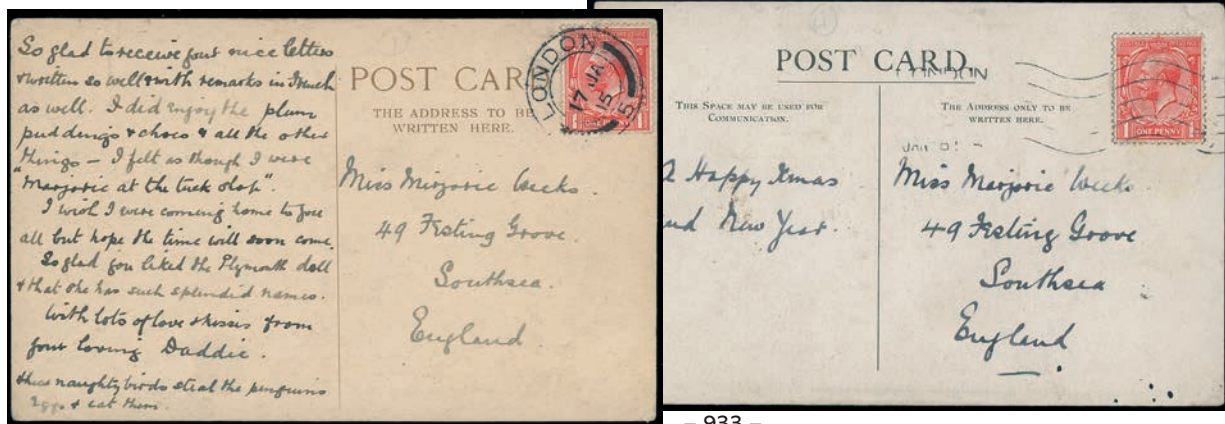 So glad to receive your nice letters
& written so well & with remarks in French
as well. I did enjoy the plum
puddings & chocs & all the other
things – I felt as though I were
"Marjorie at the tuck shop".
I wish I were coming home to you
all but hope the time will soon come.
So glad you liked the Plymouth doll
& that she has such splendid names.
With lots of love & kisses from
your loving Daddie.
these naughty birds steal the penguins
eggs & eat them.
POST CAR
THE ADDRESS TO BE
WRITTEN HERE.
LONDON
17 JA
15
ONE PENNY
Miss Marjorie Weeks.
49 Festing Grove.
Southsea.
England.
POST CARD.
THIS SPACE MAY BE USED FOR
COMMUNICATION.
A Happy Xmas
and New Year.
THE ADDRESS ONLY TO BE
WRITTEN HERE.
LONDON
JAN
ONE PENNY
Miss Marjorie Weeks.
49 Festing Grove
Southsea
England
– 933 –